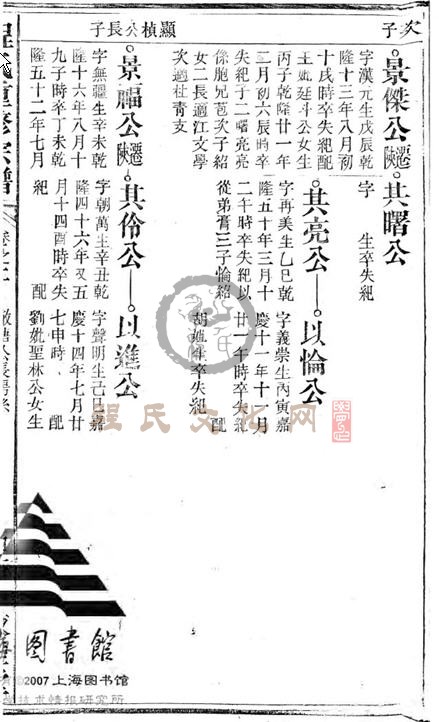 次子
景傑公遷陝
字漢元生戊辰乾
隆十三年八月初
十戌時卒失紀配
王姚廷斗公女生
丙子乾隆廿一年
二月初六辰時卒
失紀子二曙亮亮
係胞兄苞次子紹
女二長適江文學
次適杜青支
其曙公
字 生卒失紀
其亮公
字再美生乙巳乾
隆五十年三月十
二午時卒失紀以
從弟晋三子惀紹
以惀公
字義崇生丙寅嘉
慶十一年十一月
廿一午時卒失紀
配
胡 生卒失紀
顯楨公長子
景福公遷陝
字無疆生辛未乾
隆十六年八月十
九子時卒丁未乾
隆五十二年七月
其伶公
字朝萬生辛丑乾
隆四十六年又五
月十四酉時卒失
紀 配
以進公
字聲明生己巳嘉
慶十四年七月廿
七申時 配
劉 聖林公女生
程氏重修宗譜
卷之二
程氏文化网
图書館
©2007上海图书馆
科技术情报研究所